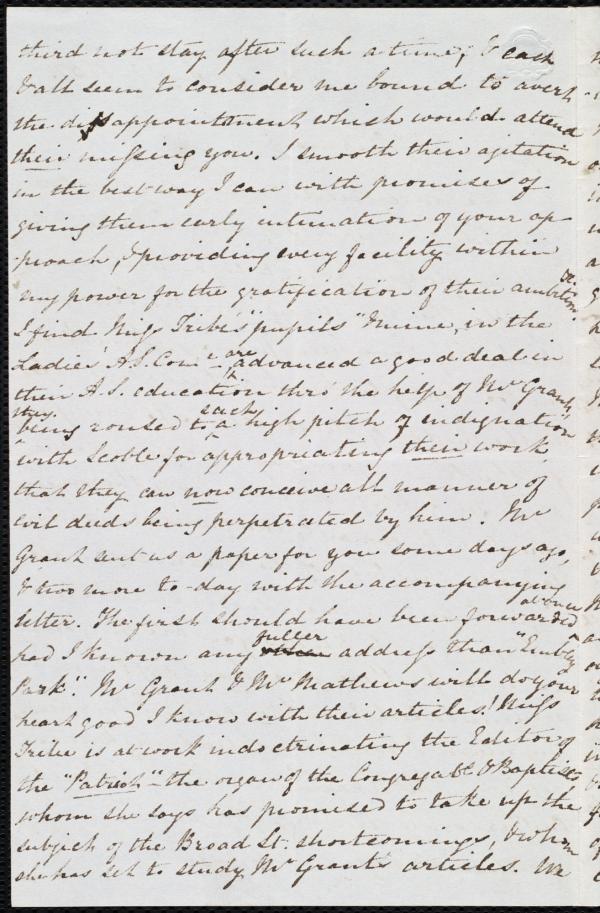 third not stay after such a time; & each
& all seem to consider me bound to avert
the disappointment which would attend
their missing you. I smooth their agitation
in the best way I can with promises of
giving them early intimation of your ap-
proach, & providing every facility within
my power for the gratification of their ambition.
I find Miss Tribe's "pupils" & mine, in the
Ladies' A.S. Com.e are advanced a good deal in
their A.S. education thro' the help of Mr Grant,
they being roused to such a high pitch of indignation
with Scoble for appropriating their work
that they can now conceive all manner of
evil deeds being perpetrated by him. Mr
Grant sent us a paper for you some days ago,
& two more to-day with the accompanying
letter. The first should have been forwarded at once
had I known any fuller address than "Embley
Park". Mr Grant & Mr Mathews will do your
heart good I know with their articles! Miss
Tribe is at work indoctrinating the Editor of
the "Patriot" - the organ of the Congregatl. & Baptists
whom she says has promised to take up the
subject of the Broad St. shortcomings, & whom
she has set to study Mr Grant's articles. We